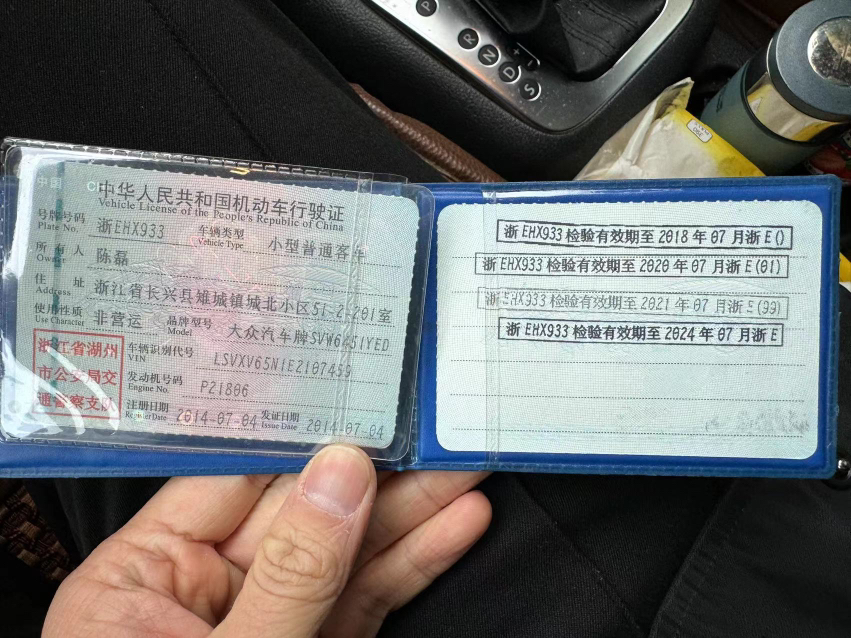 P
R
N
D
S
中华人民共和国机动车行驶证
Vehicle License of the People's Republic of China
号牌号码 浙EHX933 车辆类型 小型普通客车
Plate No. Vehicle Type
所有人 陈磊
Owner
住址 浙江省长兴县雉城镇城北小区51-2-201室
Address
使用性质 非营运 品牌型号 大众汽车牌SVW6451YED
Use Character Model
浙江省湖州
市公安局交
通警察支队
车辆识别代号 LSVXV65N1E2107459
VIN
发动机号码 P21806
Engine No.
注册日期 2014-07-04 发证日期 2014-07-04
Register Date Issue Date
浙EHX933检验有效期至2018年07月浙E()
浙EHX933检验有效期至2020年07月浙E(01)
浙EHX933检验有效期至2021年07月浙E(99)
浙EHX933检验有效期至2024年07月浙E